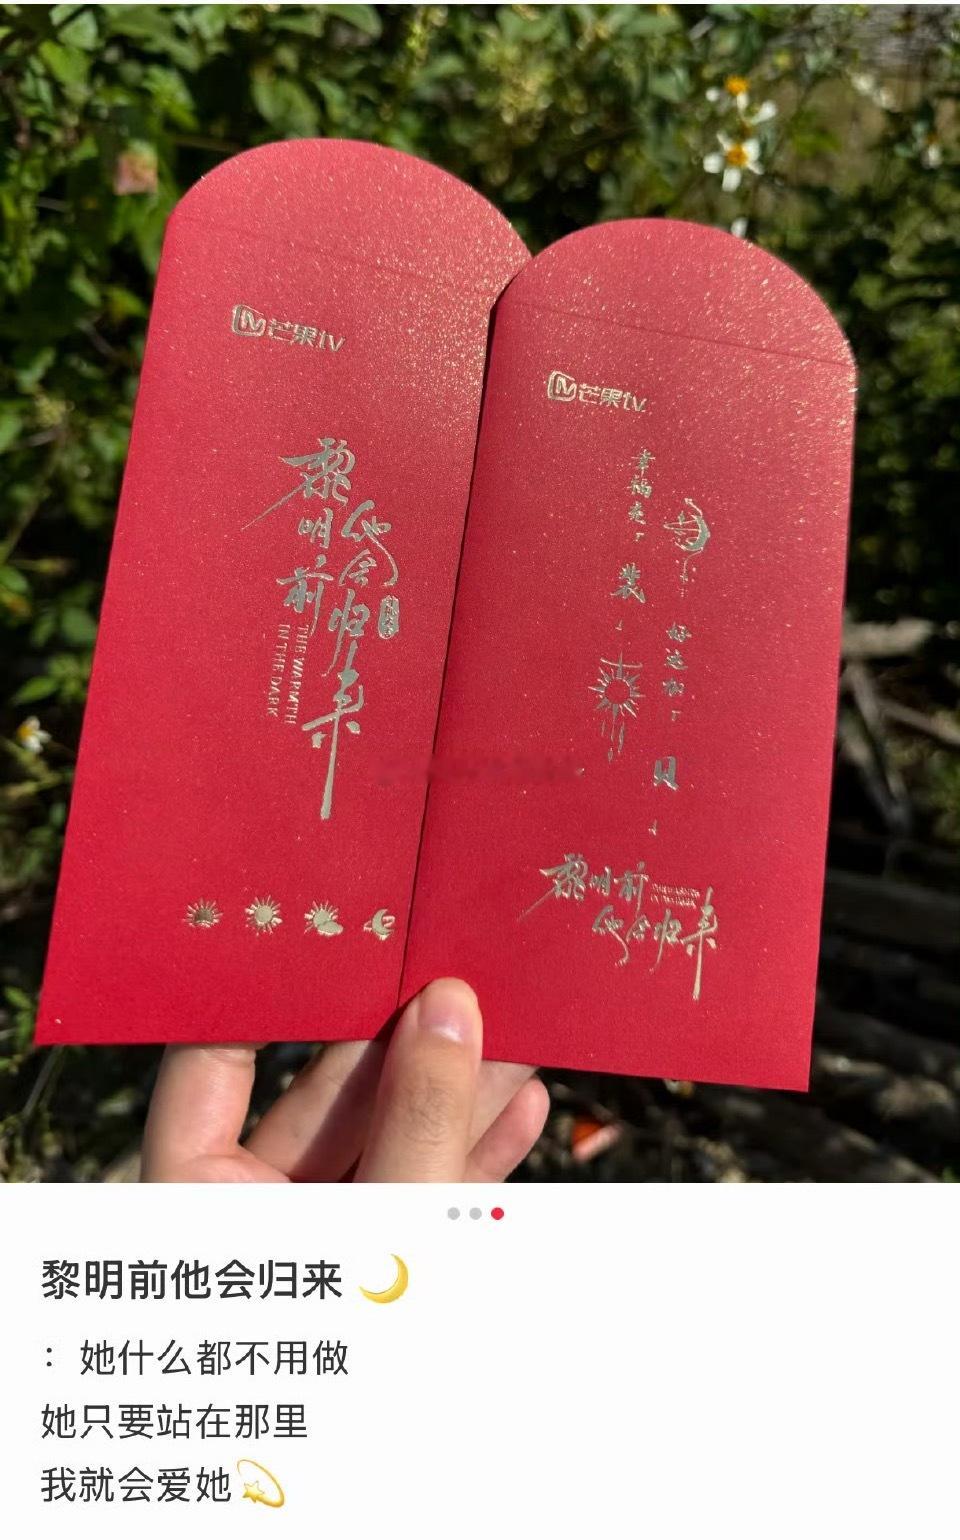 芒果tv
黎明前
他会归来
THE WARMTH
IN THE DARK
芒果tv
幸福来了
装
好运加了
贝
黎明前
他会归来
黎明前他会归来🌙
：她什么都不用做
她只要站在那里
我就会爱她💫